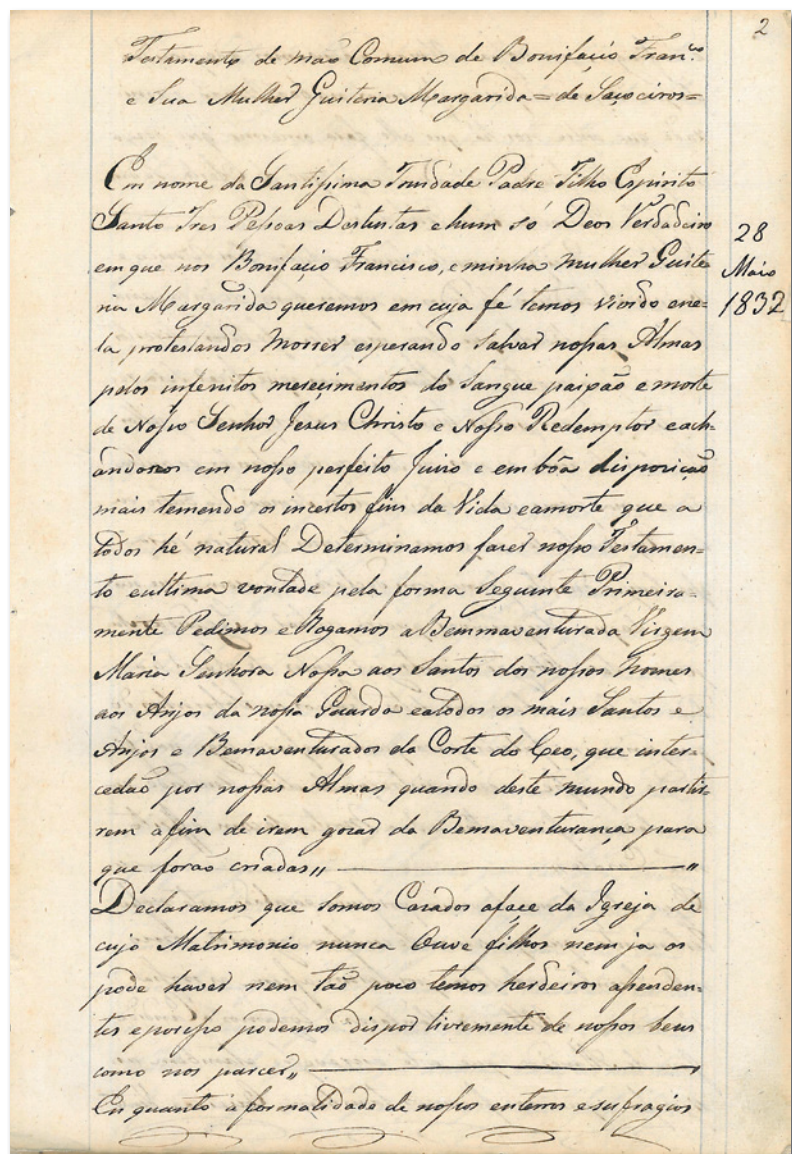 2
Testamento de mão Comum de Bonifacio Fran.co
e Sua Mulher Guiteria Margarida = de Saçoeiros =
Em nome da Santissima Trindade Padre Filho Espirito
Santo Tres Pessoas Destintas e hum só Deos Verdadeiro
em que nos Bonifacio Francisco, e minha mulher Guite
ria Margarida queremos em cuja fé temos vivido ene=
la protestandos Morrer esperando Salvar nossas Almas
pelos infenitos mereçimentos do Sangue paixão e morte
de Nosso Senhor Jezus Christo e Nosso Redemptor e ach=
andonos em nosso perfeito Juizo e em bôa dispozição
mais temendo os incertos fins da Vida eamorte que a
todos hé natural Determinamos fazer nosso Testamen=
to eultima vontade pela forma Seguinte Primeira=
mente Pedimos e Rogamos a Bemmaventurada Virgem
Maria Senhora Nossa aos Santos dos nossos Nomes
aos Anjos da nossa Guarda eatodos os mais Santos e
Anjos e Bemaventurados da Corte do Ceo, que inter=
cedão por nossas Almas quando deste mundo partir=
rem afim de irem gozar da Bemaventurança para
que forão criadas,, ———— "
Declaramos que Somos Cazados aface da Igreja de
cujo Matrimonio nunca Ouve filhos nem ja os
pode haver nem tão pouco temos herdeiros assenden=
tes eporisso podemos dispor livremente de nossos bens
como nos parcer,, ————
En quanto a formalidade de nossos enterros esufragios
28
Maio
1832